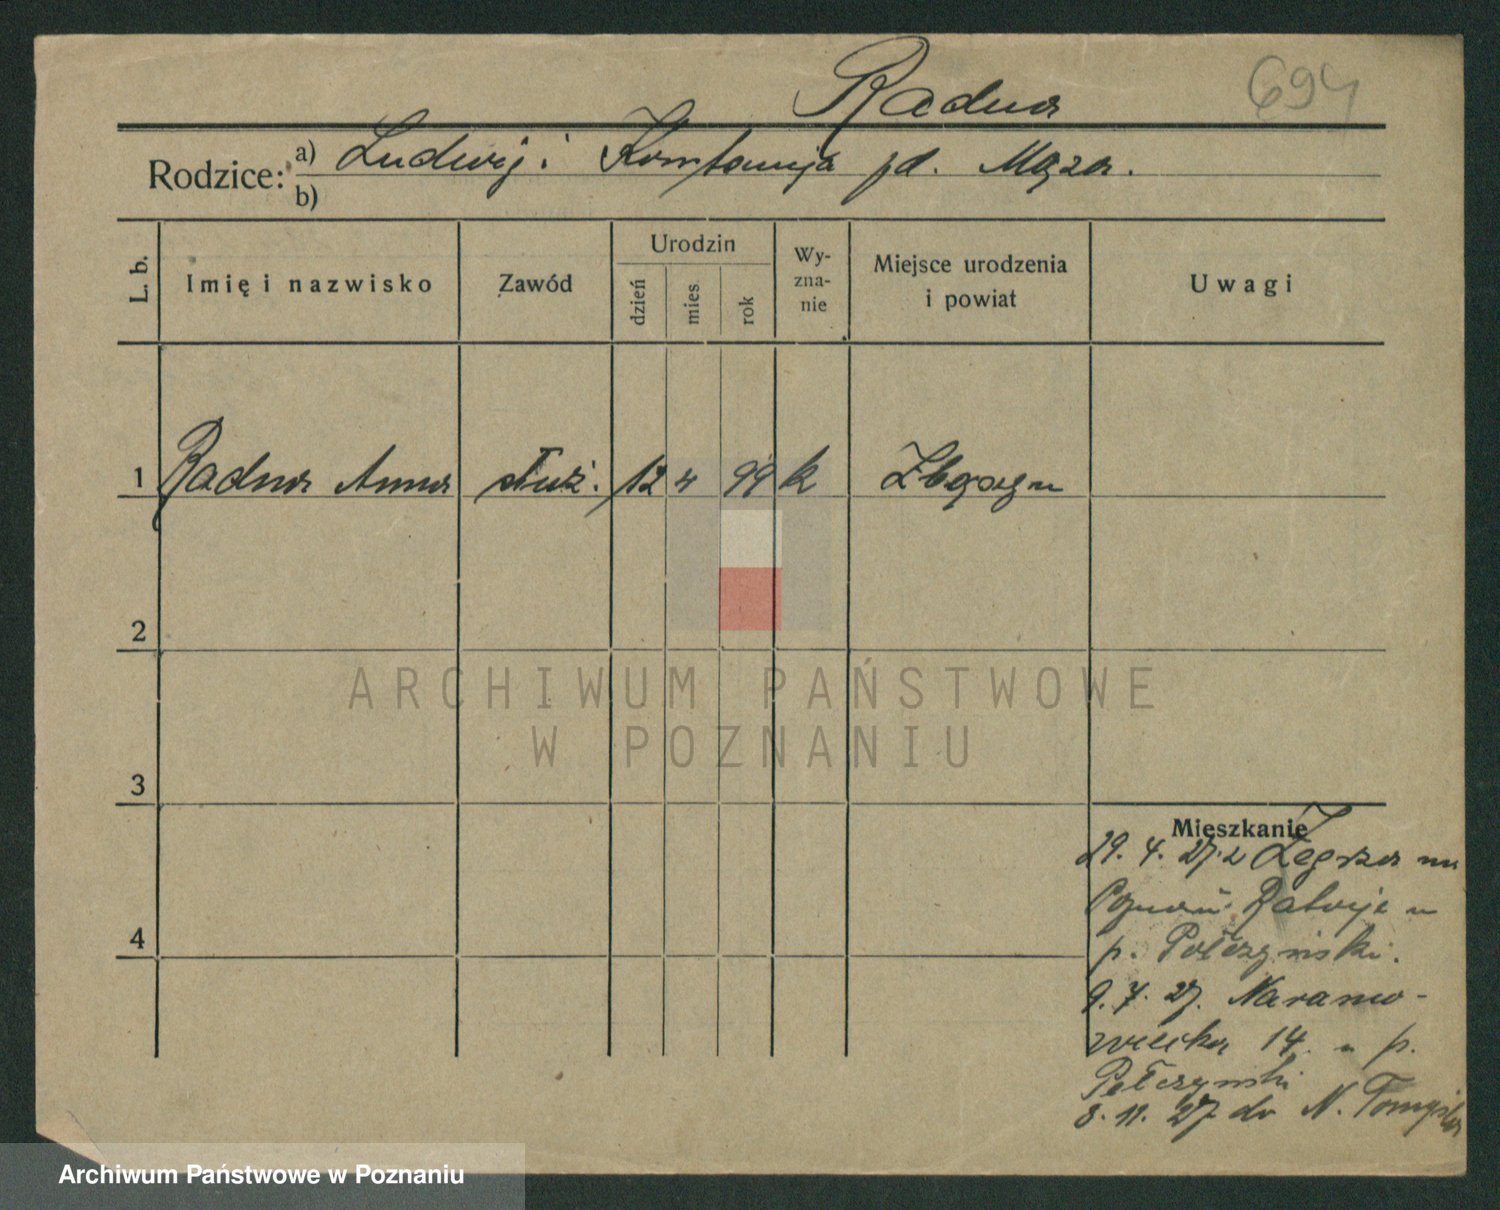 Radna
694
Rodzice: a) Ludwig i Konstancja pd. Mąza.
b)
L. b. Imię i nazwisko Zawód Urodzin dzień mies. rok Wy-zna-nie Miejsce urodzenia i powiat Uwagi
1 Radna Anna służ. 12 4 99 k Zbąszyn
2
3
4
Mieszkanie
29. 4. 27. z Zegrza na
Poznań u
p. Pełczyński.
9. 7. 27. Naramo-
wicka 14. u p.
Pełczyński
8. 11. 27 do N. Tomyśla
ARCHIWUM PAŃSTWOWE
W POZNANIU
Archiwum Państwowe w Poznaniu